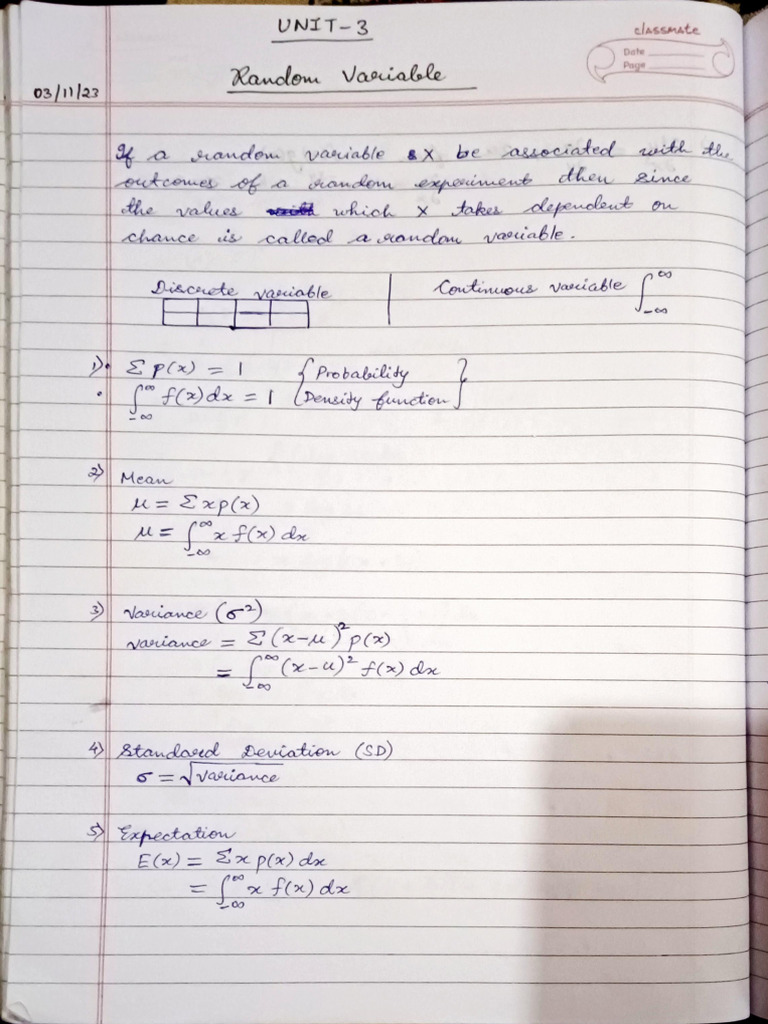 UNIT-3
classmate
Date
Page
Random Variable
03/11/23
If a random variable X be associated with the
outcomes of a random experiment then since
the values which X takes dependent on
chance is called a random variable.
Discrete variable | Continuous variable ∫_{-∞}^{∞}
1) • Σ p(x) = 1 {Probability
• ∫_{-∞}^{∞} f(x) dx = 1 Density function}
2) Mean
μ = Σ x p(x)
μ = ∫_{-∞}^{∞} x f(x) dx
3) Variance (σ²)
variance = Σ (x-μ)² p(x)
= ∫_{-∞}^{∞} (x-μ)² f(x) dx
4) Standard Deviation (SD)
σ = √variance
5) Expectation
E(x) = Σ x p(x) dx
= ∫_{-∞}^{∞} x f(x) dx